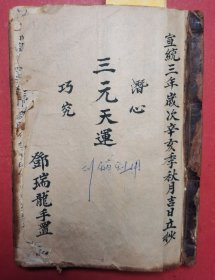 宣統三年歲次辛亥季秋月吉日立抄
潛心
三元天運
巧究
鄧瑞龍手置